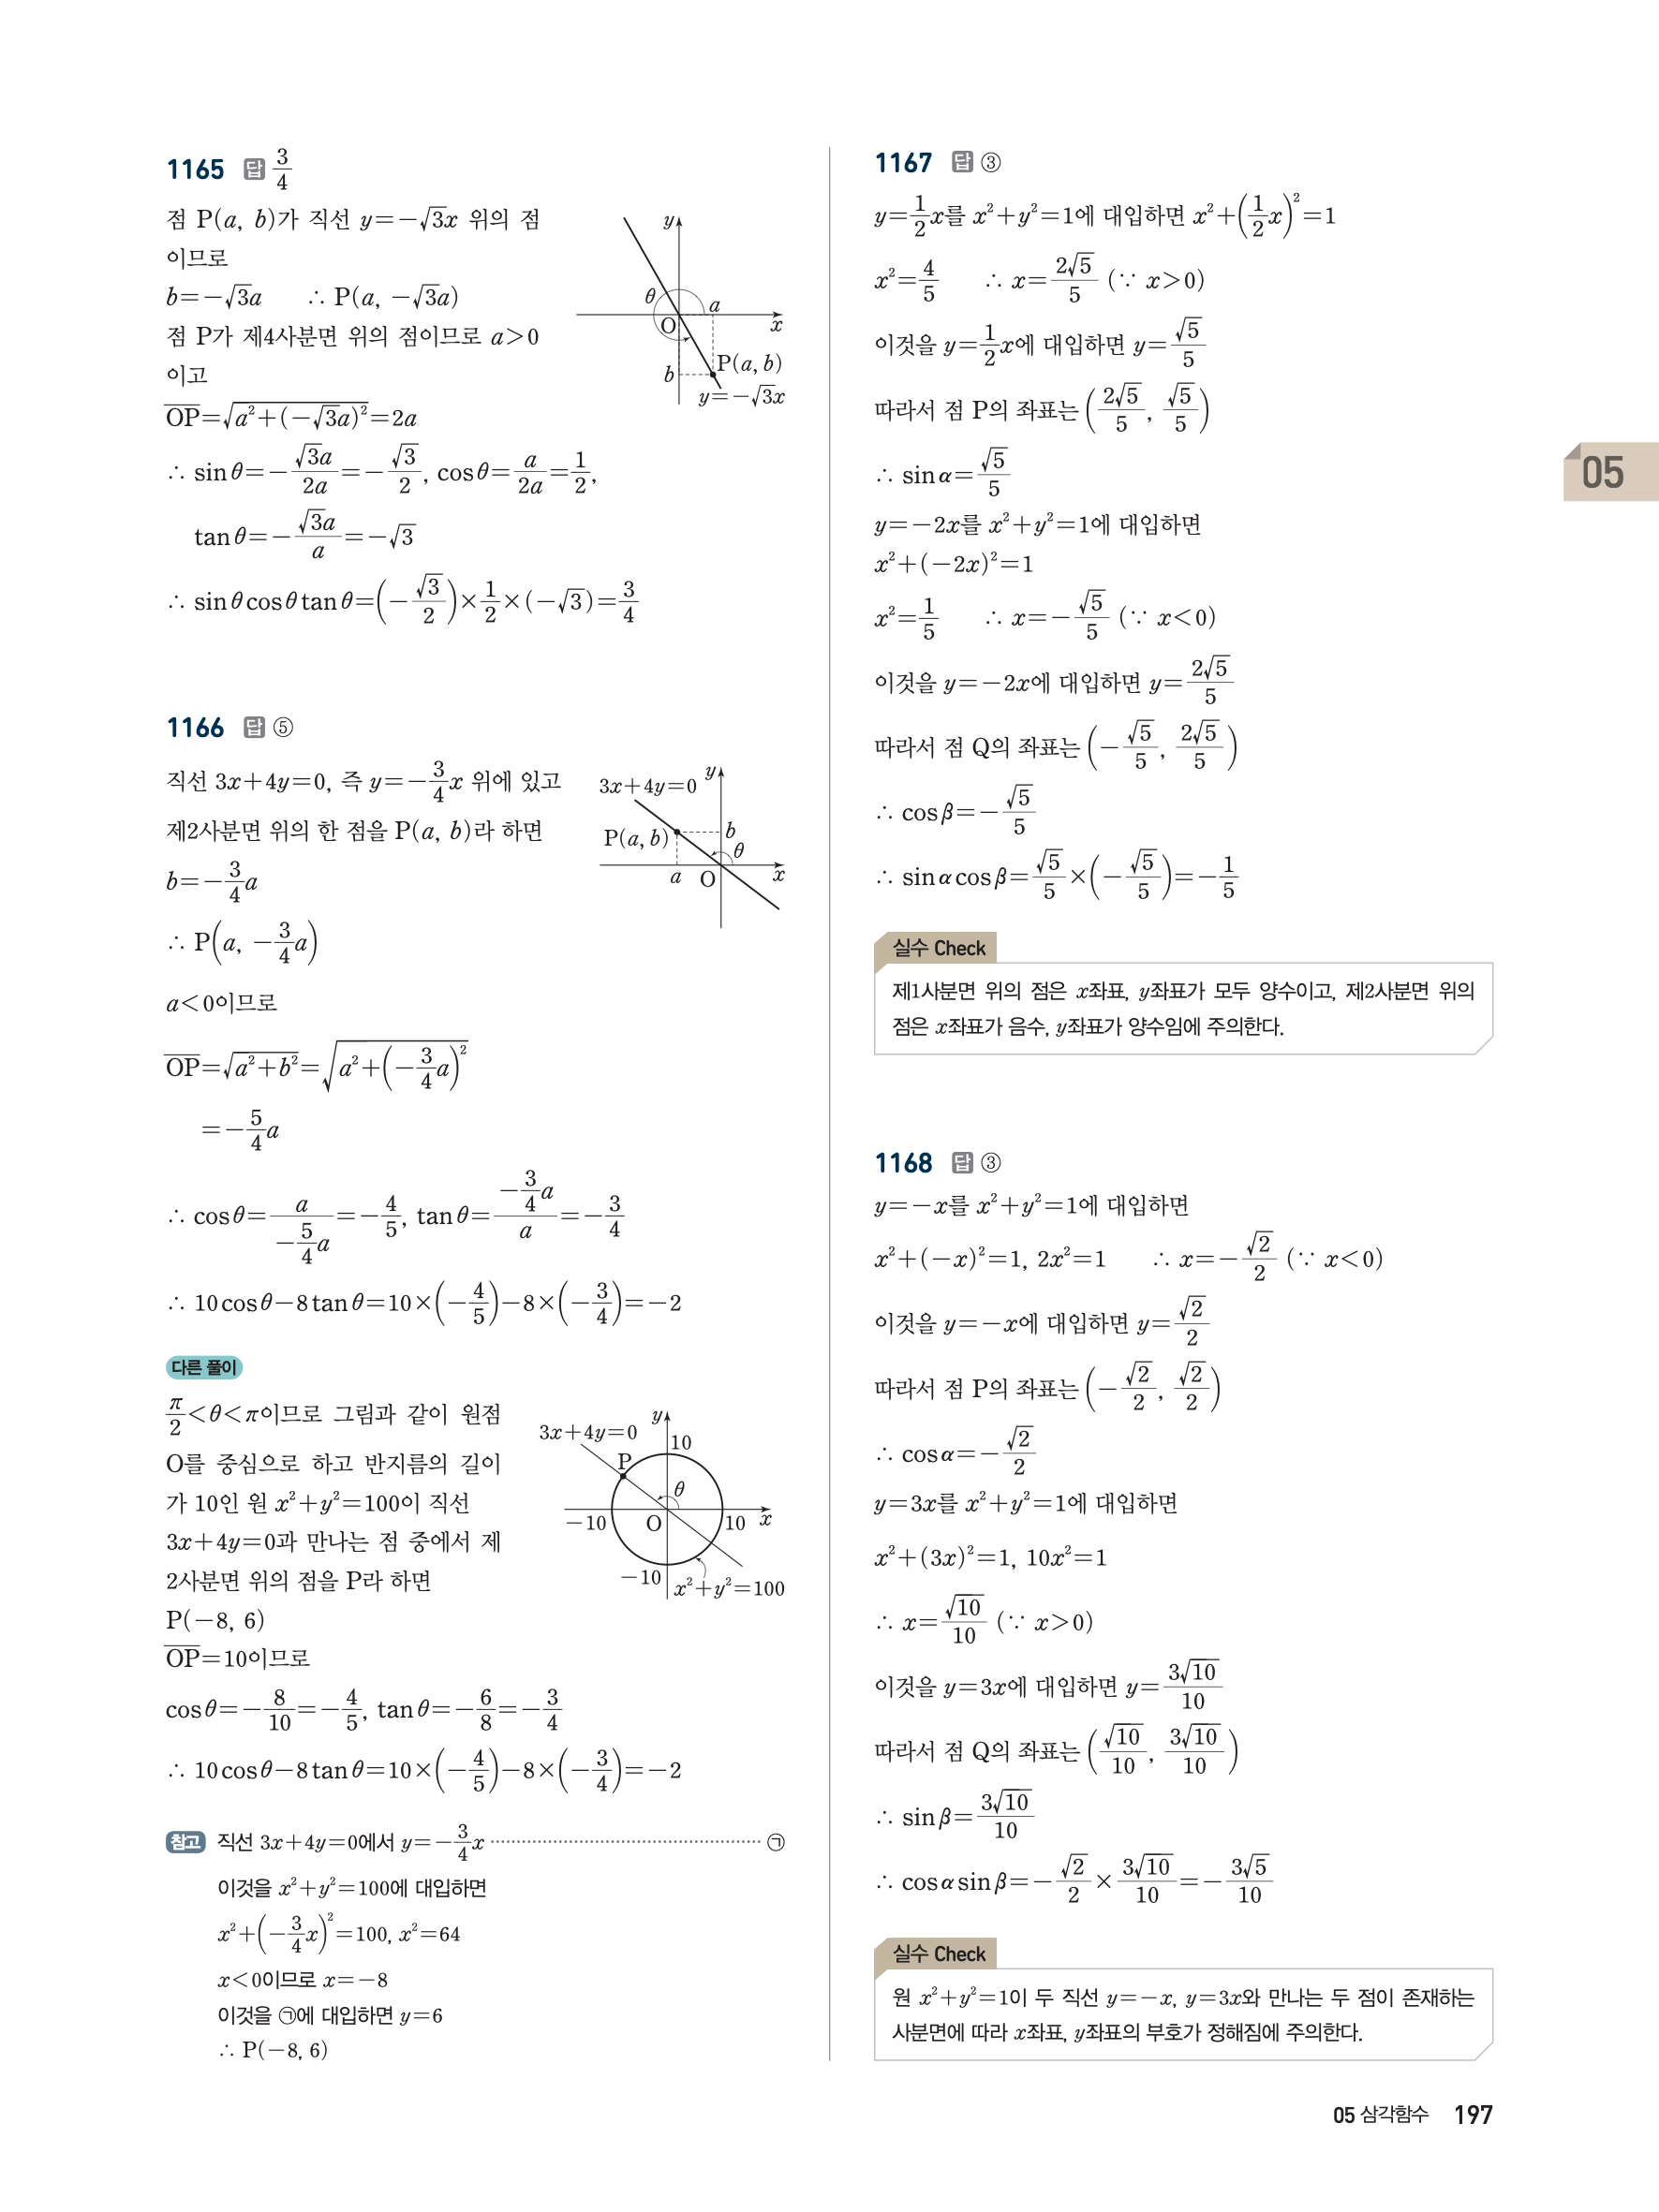 1165 답 3/4
점 P(a, b)가 직선 y=-√3x 위의 점
이므로
b=-√3a ∴ P(a, -√3a)
점 P가 제4사분면 위의 점이므로 a>0
이고
OP=√(a²+(-√3a)²)=2a
∴ sinθ=-√3a/2a=-√3/2, cosθ=a/2a=1/2,
tanθ=-√3a/a=-√3
∴ sinθcosθtanθ=(-√3/2)×1/2×(-√3)=3/4
y
θ
a
O
x
P(a, b)
b
y=-√3x
1166 답 ⑤
직선 3x+4y=0, 즉 y=-3/4x 위에 있고
제2사분면 위의 한 점을 P(a, b)라 하면
b=-3/4a
∴ P(a, -3/4a)
a<0이므로
OP=√(a²+b²)=√(a²+(-3/4a)²)
=-5/4a
∴ cosθ=a/(-5/4a)=-4/5, tanθ=(-3/4a)/a=-3/4
∴ 10cosθ-8tanθ=10×(-4/5)-8×(-3/4)=-2
3x+4y=0
y
P(a, b)
b
θ
a
O
x
다른 풀이
π/2<θ<π이므로 그림과 같이 원점
O를 중심으로 하고 반지름의 길이
가 10인 원 x²+y²=100이 직선
3x+4y=0과 만나는 점 중에서 제
2사분면 위의 점을 P라 하면
P(-8, 6)
OP=10이므로
cosθ=-8/10=-4/5, tanθ=-6/8=-3/4
∴ 10cosθ-8tanθ=10×(-4/5)-8×(-3/4)=-2
3x+4y=0
y
10
P
θ
-10
O
10
x
-10
x²+y²=100
참고 직선 3x+4y=0에서 y=-3/4x ········ ㉠
이것을 x²+y²=100에 대입하면
x²+(-3/4x)²=100, x²=64
x<0이므로 x=-8
이것을 ㉠에 대입하면 y=6
∴ P(-8, 6)
1167 답 ③
y=1/2x를 x²+y²=1에 대입하면 x²+(1/2x)²=1
x²=4/5 ∴ x=2√5/5 (∵ x>0)
이것을 y=1/2x에 대입하면 y=√5/5
따라서 점 P의 좌표는 (2√5/5, √5/5)
∴ sinα=√5/5
y=-2x를 x²+y²=1에 대입하면
x²+(-2x)²=1
x²=1/5 ∴ x=-√5/5 (∵ x<0)
이것을 y=-2x에 대입하면 y=2√5/5
따라서 점 Q의 좌표는 (-√5/5, 2√5/5)
∴ cosβ=-√5/5
∴ sinαcosβ=√5/5×(-√5/5)=-1/5
실수 Check
제1사분면 위의 점은 x좌표, y좌표가 모두 양수이고, 제2사분면 위의
점은 x좌표가 음수, y좌표가 양수임에 주의한다.
1168 답 ③
y=-x를 x²+y²=1에 대입하면
x²+(-x)²=1, 2x²=1 ∴ x=-√2/2 (∵ x<0)
이것을 y=-x에 대입하면 y=√2/2
따라서 점 P의 좌표는 (-√2/2, √2/2)
∴ cosα=-√2/2
y=3x를 x²+y²=1에 대입하면
x²+(3x)²=1, 10x²=1
∴ x=√10/10 (∵ x>0)
이것을 y=3x에 대입하면 y=3√10/10
따라서 점 Q의 좌표는 (√10/10, 3√10/10)
∴ sinβ=3√10/10
∴ cosαsinβ=-√2/2×3√10/10=-3√5/10
실수 Check
원 x²+y²=1이 두 직선 y=-x, y=3x와 만나는 두 점이 존재하는
사분면에 따라 x좌표, y좌표의 부호가 정해짐에 주의한다.
05
05 삼각함수 197